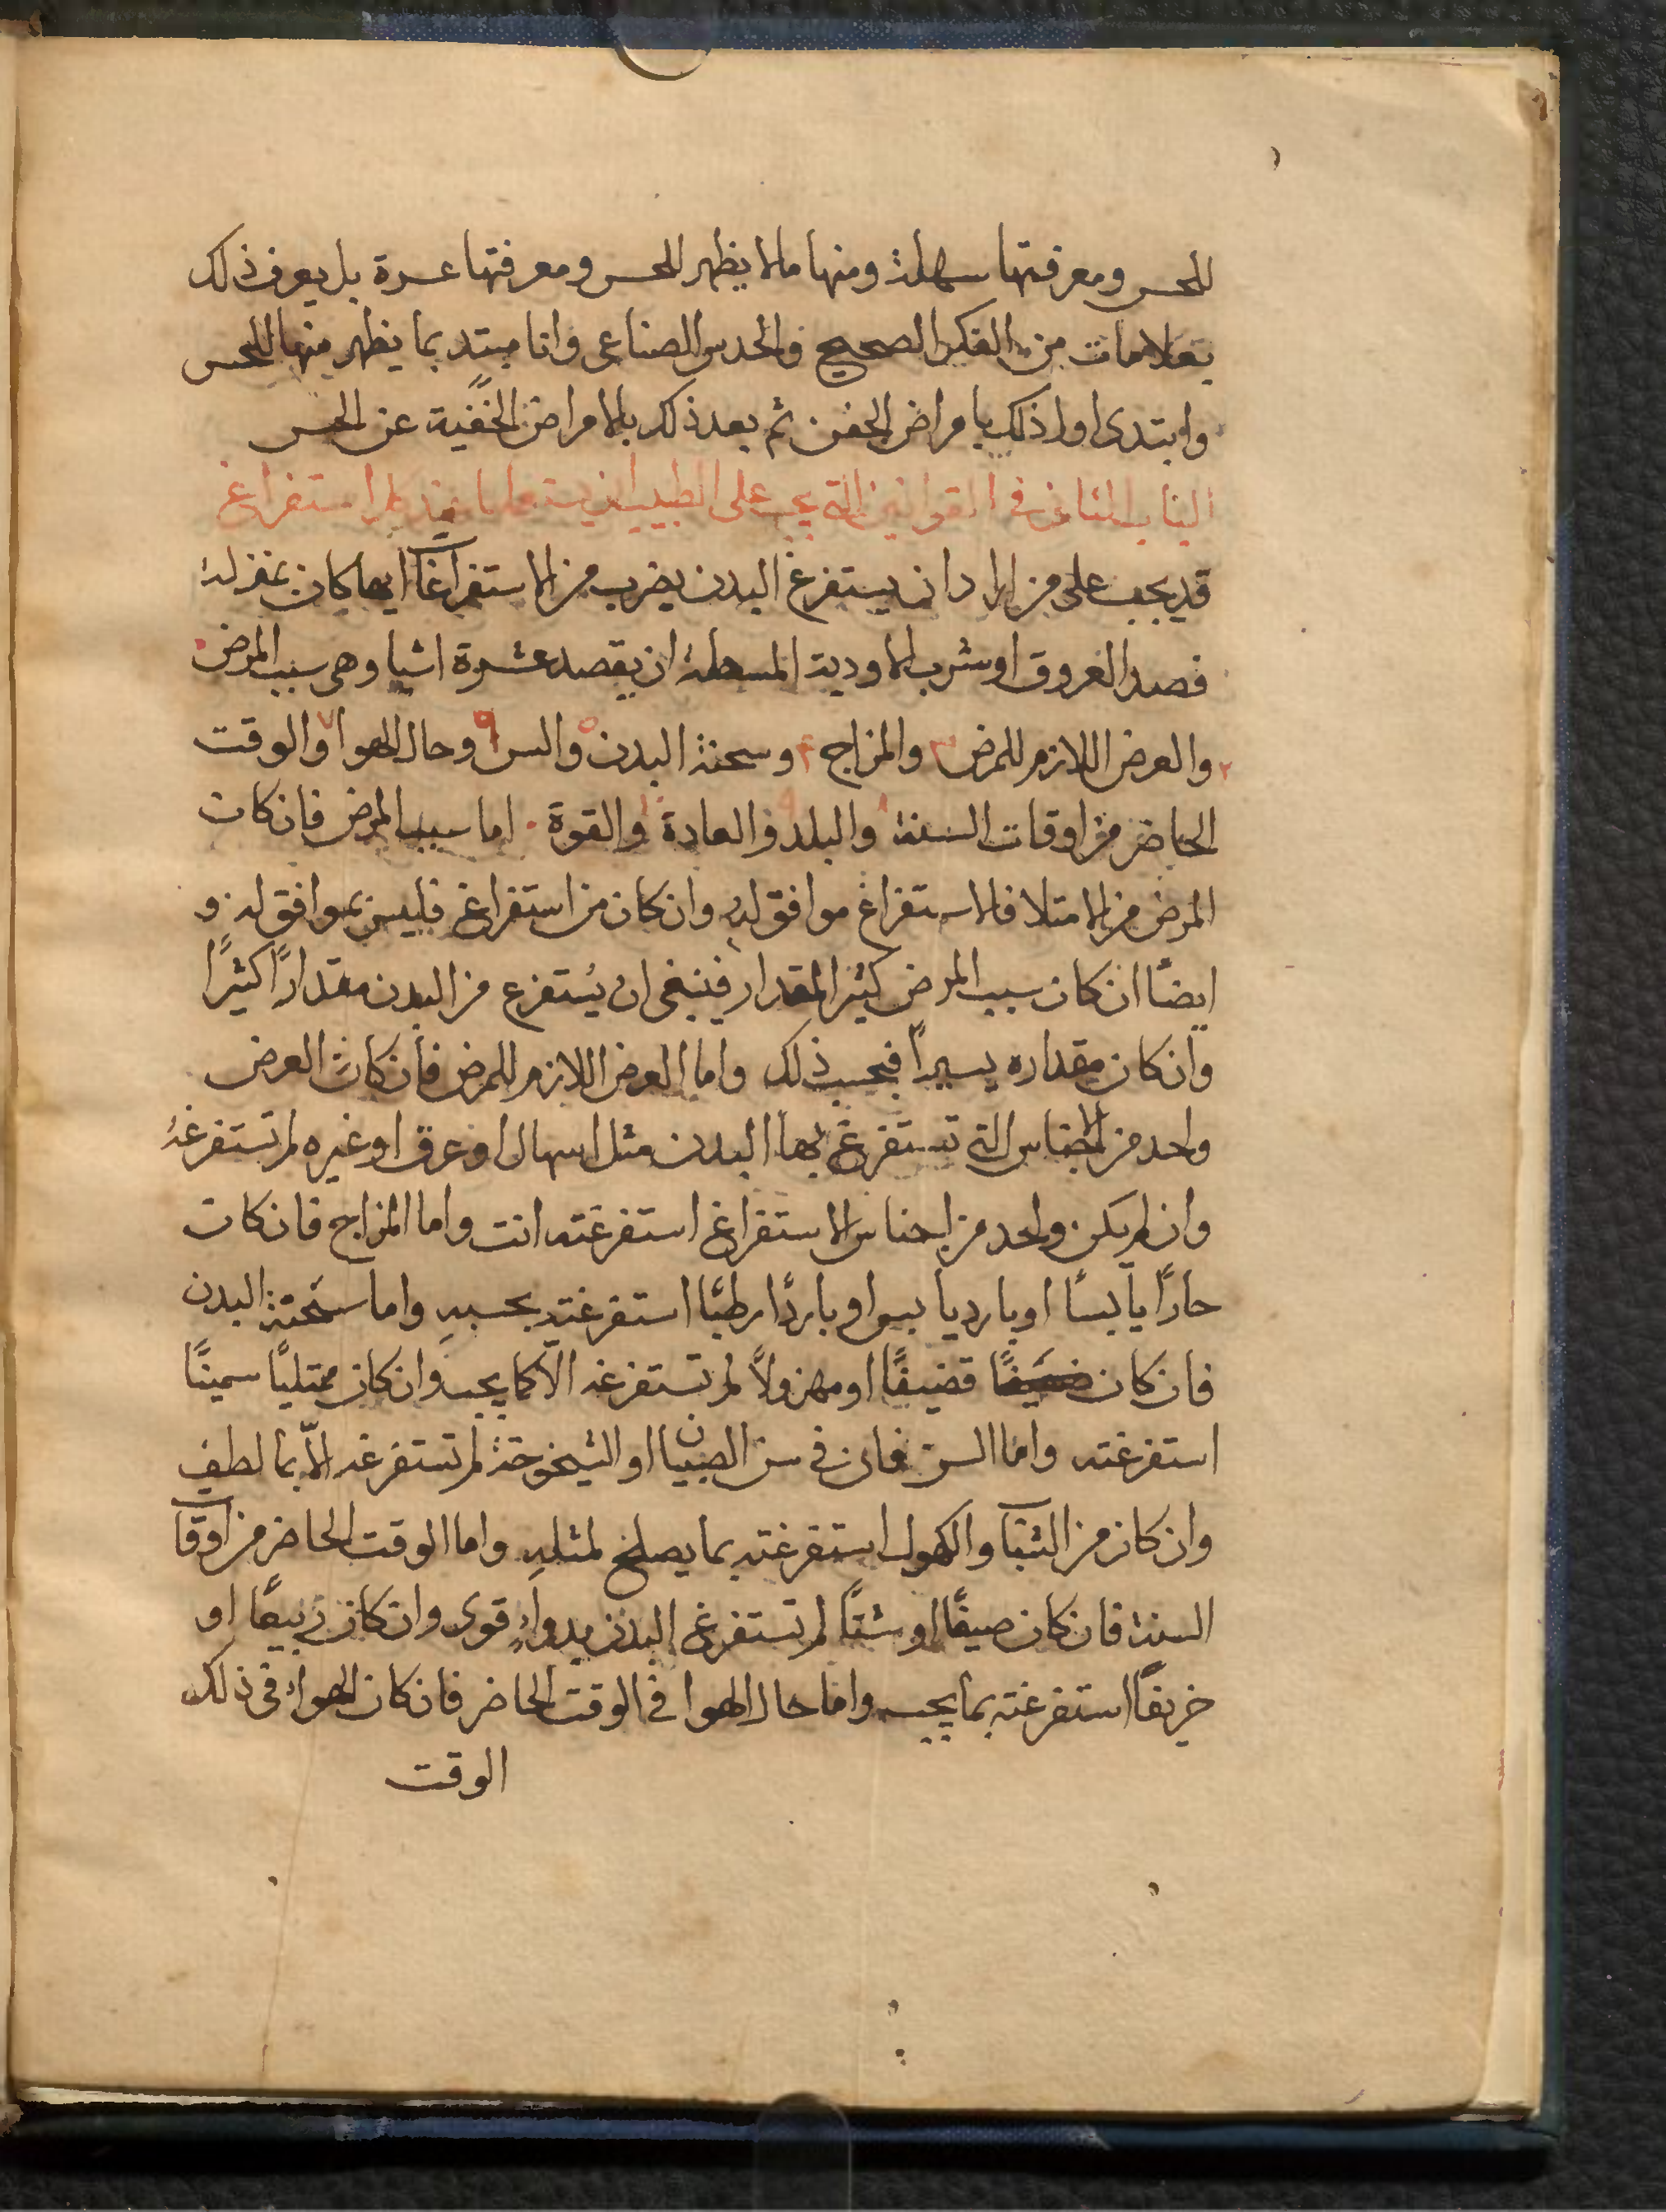 للحس ومعرفتها سهلة ومنها مالا يظهر للحس ومعرفتها عسرة بل يعرف ذلك
بعلامات من الفكر الصحيح والحدس الصناعى وانا مبتد بما يظهر منها للحس
وابتدى اولا ذلك بامراض الجفن ثم بعد ذلك بالامراض الخفية عن الحس
الباب الثانى فى القوانين التى يجب على الطبيب ان يستعملها عند كل استفراغ
قد يجب على من اراد ان يستفرغ البدن بضرب من الاستفراغات ايها كان بمنزلة
فصد العروق او شرب الاودية المسهلة ان يقصد عشرة اشيا وهى سبب المرض
٢ والعرض اللازم للمرض ٣ والمزاج ٤ وسحنة البدن ٥ والسن ٦ وحال الهوا ٧ والوقت
الحاضر من اوقات السنة ٨ والبلد ٩ والعادة ١٠ والقوة اما سبب المرض فان كان
المرض من الامتلا فالاستفراغ موافق له وان كان من استفراغ فليس بموافق له و
ايضًا ان كان سبب المرض كثير المقدار فينبغى ان يُستفرغ من البدن مقدارًا كثيرًا
وان كان مقداره يسيرًا فبحسب ذلك واما العرض اللازم للمرض فان كان العرض
واحد من الاجناس التى تستفرغ بها البدن مثل اسهال او عرق او غيره لم تستفرغه
وان لم يكن واحد من اجناس الاستفراغ استفرغته انت واما المزاج فان كان
حارًا يابسًا او بارد يابس او باردًا رطبًا استفرغته بحسبه واما سحنة البدن
فان كان قضيفًا او مهزولًا لم تستفرغه الّا كما يجب وان كان ممتليًا سمينًا
استفرغته واما السن فان فى سن الصبيان او الشيخوخة لم تستفرغه الّا بما لطف
وان كان من الشباب والكهول استفرغته بما يصلح لمثله واما الوقت الحاضر من اوقات
السنة فان كان صيفًا او شتًا لم تستفرغ البدن بدواءٍ قوى وان كان ربيعًا او
خريفًا استفرغته بما يجب واما حال الهوا فى الوقت الحاضر فان كان الهواء فى ذلك
الوقت